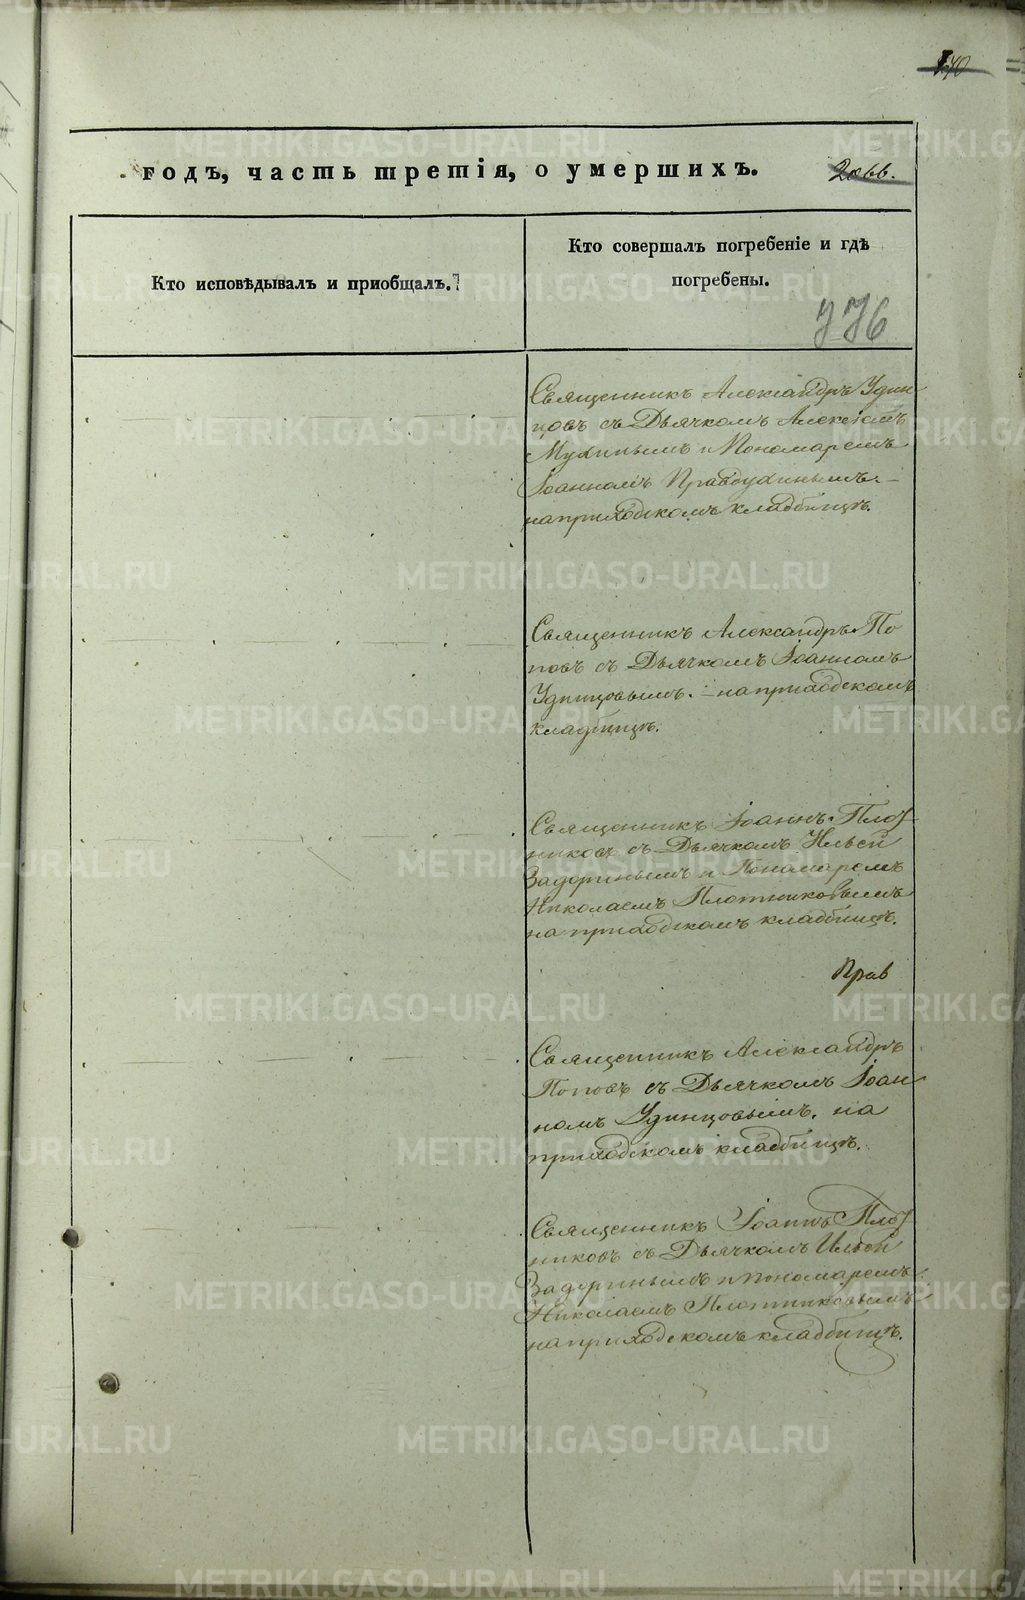 годъ, часть третія, о умершихъ.
2066.
Кто исповѣдывалъ и приобщалъ.
Кто совершалъ погребеніе и гдѣ
погребены.
776
Священникъ Александръ Удин
цовъ съ Дьячкомъ Алексѣемъ
Мухинымъ и Пономаремъ
Іоанномъ Правоухинымъ.
на приходскомъ кладбищѣ.
Священникъ Александръ По
повъ съ Дьячкомъ Іоанномъ
Удинцовымъ. на приходскомъ
кладбищѣ.
Священникъ Іоаннъ Плот
никовъ съ Дьячкомъ Ильей
Задоринымъ и Пономаремъ
Николаемъ Плотниковымъ
на приходскомъ кладбищѣ.
Прав
Священникъ Александръ
Поповъ съ Дьячкомъ Іоан
номъ Удинцовымъ. на
приходскомъ кладбищѣ.
Священникъ Іоаннъ Плот
никовъ съ Дьячкомъ Ильей
Задоринымъ и пономаремъ
Николаемъ Плотниковымъ
на приходскомъ кладбищѣ.
METRIKI.GASO-URAL.RU